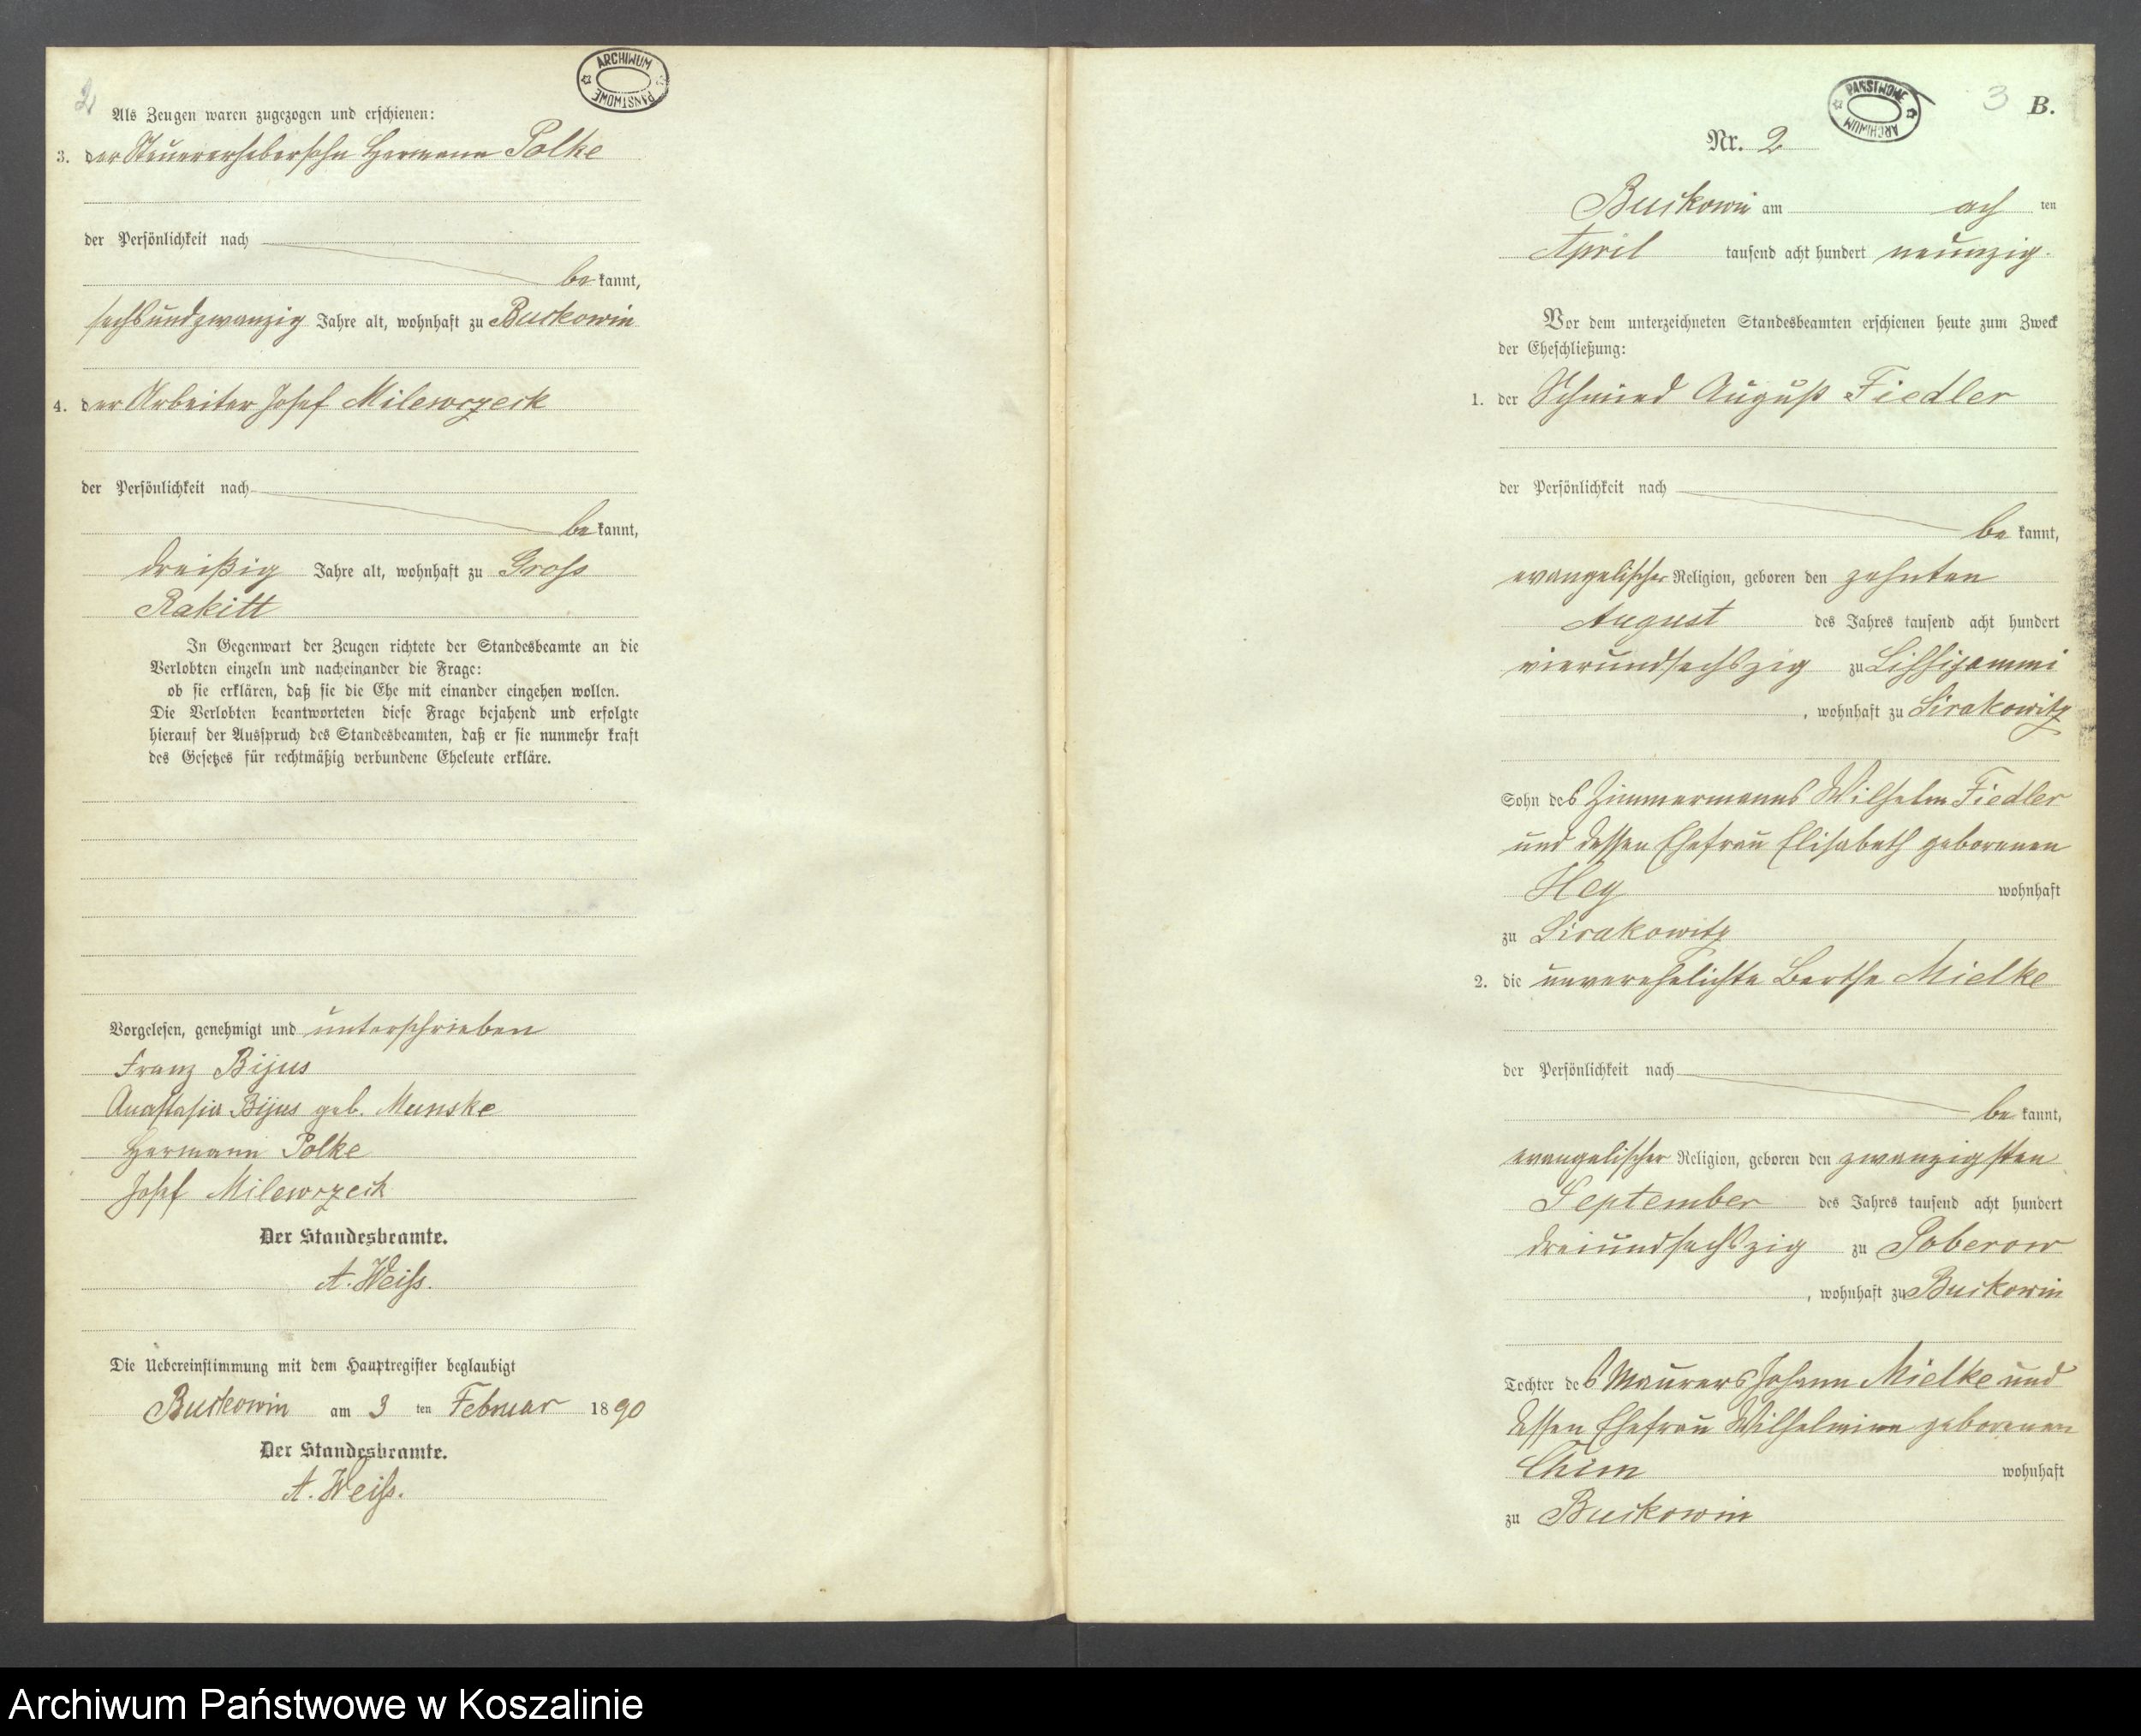 2
ARCHIWUM
PAŃSTWOWE
Als Zeugen waren zugezogen und erschienen:
3. der Steuererhebersohn Hermann Polke
der Persönlichkeit nach
be kannt,
sechsundzwanzig Jahre alt, wohnhaft zu Buckowin
4. der Arbeiter Josef Milewczeck
der Persönlichkeit nach
be kannt,
dreißig Jahre alt, wohnhaft zu Gross
Rakitt
In Gegenwart der Zeugen richtete der Standesbeamte an die
Verlobten einzeln und nacheinander die Frage:
ob sie erklären, daß sie die Ehe mit einander eingehen wollen.
Die Verlobten beantworteten diese Frage bejahend und erfolgte
hierauf der Ausspruch des Standesbeamten, daß er sie nunmehr kraft
des Gesetzes für rechtmäßig verbundene Eheleute erkläre.
Vorgelesen, genehmigt und unterschrieben
Franz Bijus
Anastasia Bijus geb. Munske
Hermann Polke
Josef Milewczeck
Der Standesbeamte.
A. Weiss.
Die Uebereinstimmung mit dem Hauptregister beglaubigt
Buckowin am 3 ten Februar 1890
Der Standesbeamte.
A. Weiss.
PAŃSTWOWE
ARCHIWUM
3 B.
Nr. 2
Buckowin am ach ten
April tausend acht hundert neunzig.
Vor dem unterzeichneten Standesbeamten erschienen heute zum Zweck
der Eheschließung:
1. der Schmied August Fiedler
der Persönlichkeit nach
be kannt,
evangelischer Religion, geboren den zehnten
August des Jahres tausend acht hundert
vierundsechszig zu
, wohnhaft zu Sirakowitz
Sohn des Zimmermanns Wilhelm Fiedler
und dessen Ehefrau Elisabeth geborenen
Hey wohnhaft
zu Sirakowitz
2. die unverehelichte Berthe Mielke
der Persönlichkeit nach
be kannt,
evangelischer Religion, geboren den zwanzigsten
September des Jahres tausend acht hundert
dreiundsechszig zu Poberow
, wohnhaft zu Buckowin
Tochter des Maurers Johann Mielke und
dessen Ehefrau Wilhelmine geborenen
Thim wohnhaft
zu Buckowin
Archiwum Państwowe w Koszalinie